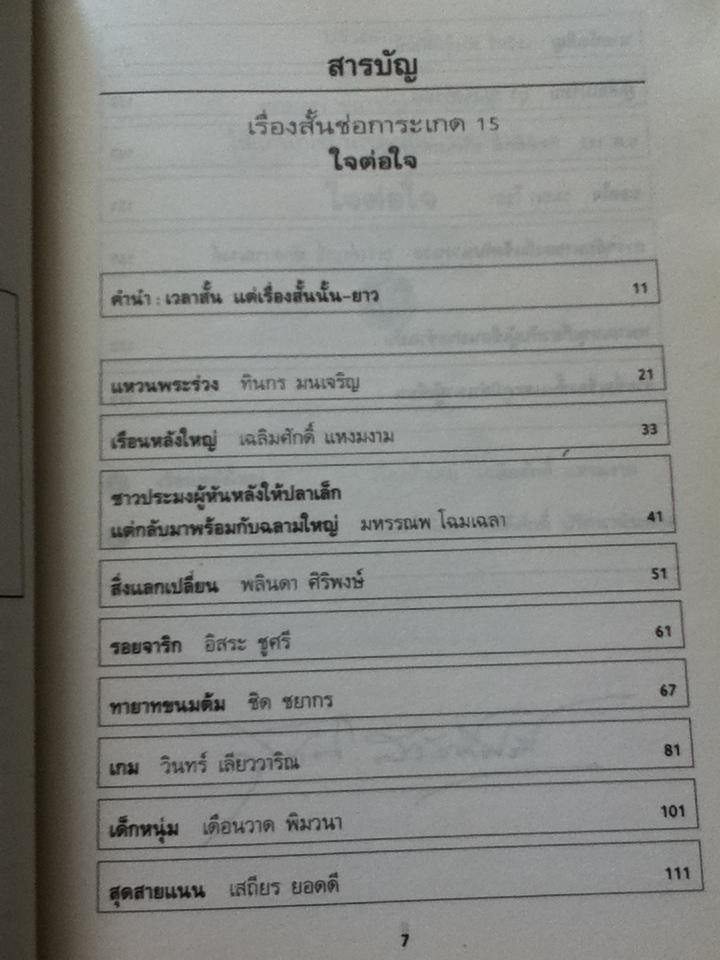 สารบัญ
เรื่องสั้นช่อการะเกด 15
ใจต่อใจ
คำนำ : เวลาสั้น แต่เรื่องสั้นนั้น-ยาว 11
แหวนพระร่วง ทินกร มนเจริญ 21
เรือนหลังใหญ่ เฉลิมศักดิ์ แหงมงาม 33
ชาวประมงผู้หันหลังให้ปลาเล็ก
แต่กลับมาพร้อมกับฉลามใหญ่ มหรรณพ โฉมเฉลา 41
สิ่งแลกเปลี่ยน พลินดา ศิริพงษ์ 51
รอยจาริก อิสระ ชูศรี 61
ทายาทขนมต้ม ชิด ชยากร 67
เกม วินทร์ เลียววาริณ 81
เด็กหนุ่ม เดือนวาด พิมวนา 101
สุดสายแนน เสถียร ยอดดี 111
7